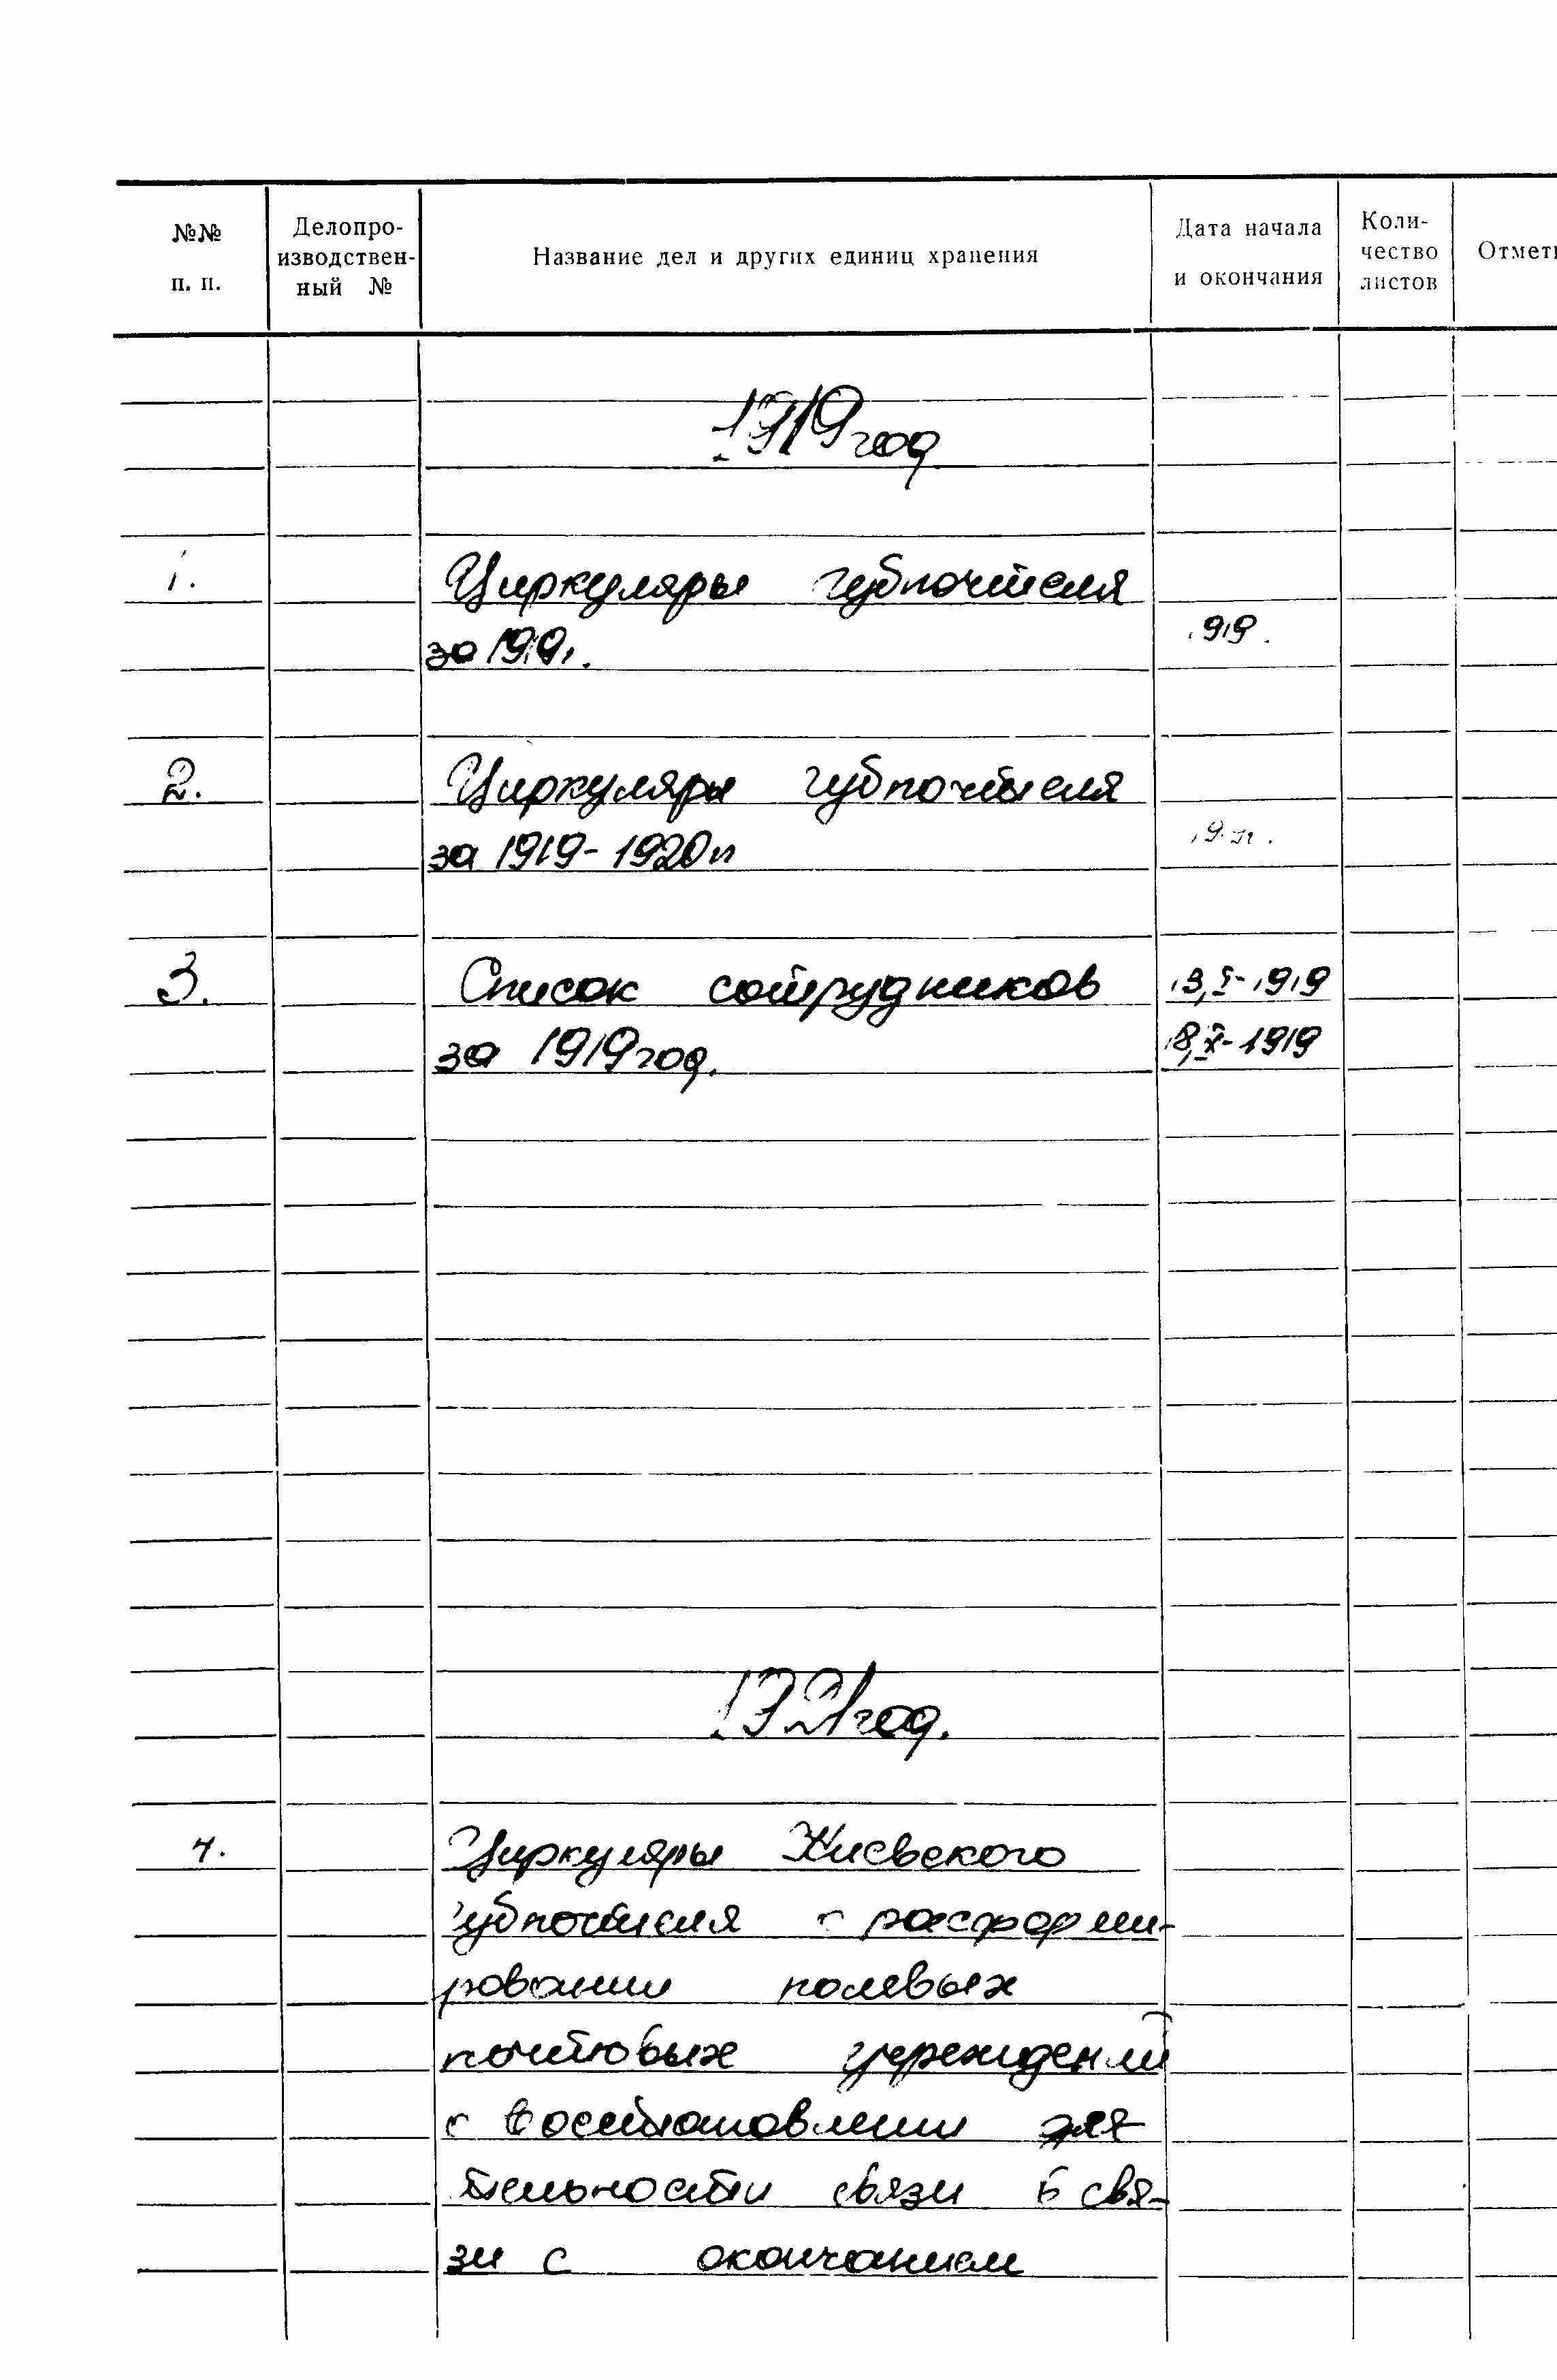 №№ п. п.
Делопро-
изводствен-
ный №
Название дел и других единиц хранения
Дата начала
и окончания
Коли-
чество
листов
Отмет
1919 год
1. Циркуляры губпочтеля
за 1919г. 1919.
2. Циркуляры губпочтеля
за 1919-1920гг
3. Список сотрудников 13,I-1919
за 1919 год. 18,X-1919
1921 год.
4. Циркуляры Киевского
губпочтеля о расформи-
ровании полевых
почтовых учреждений
о восстановлении дея-
тельности связи в свя-
зи с окончанием